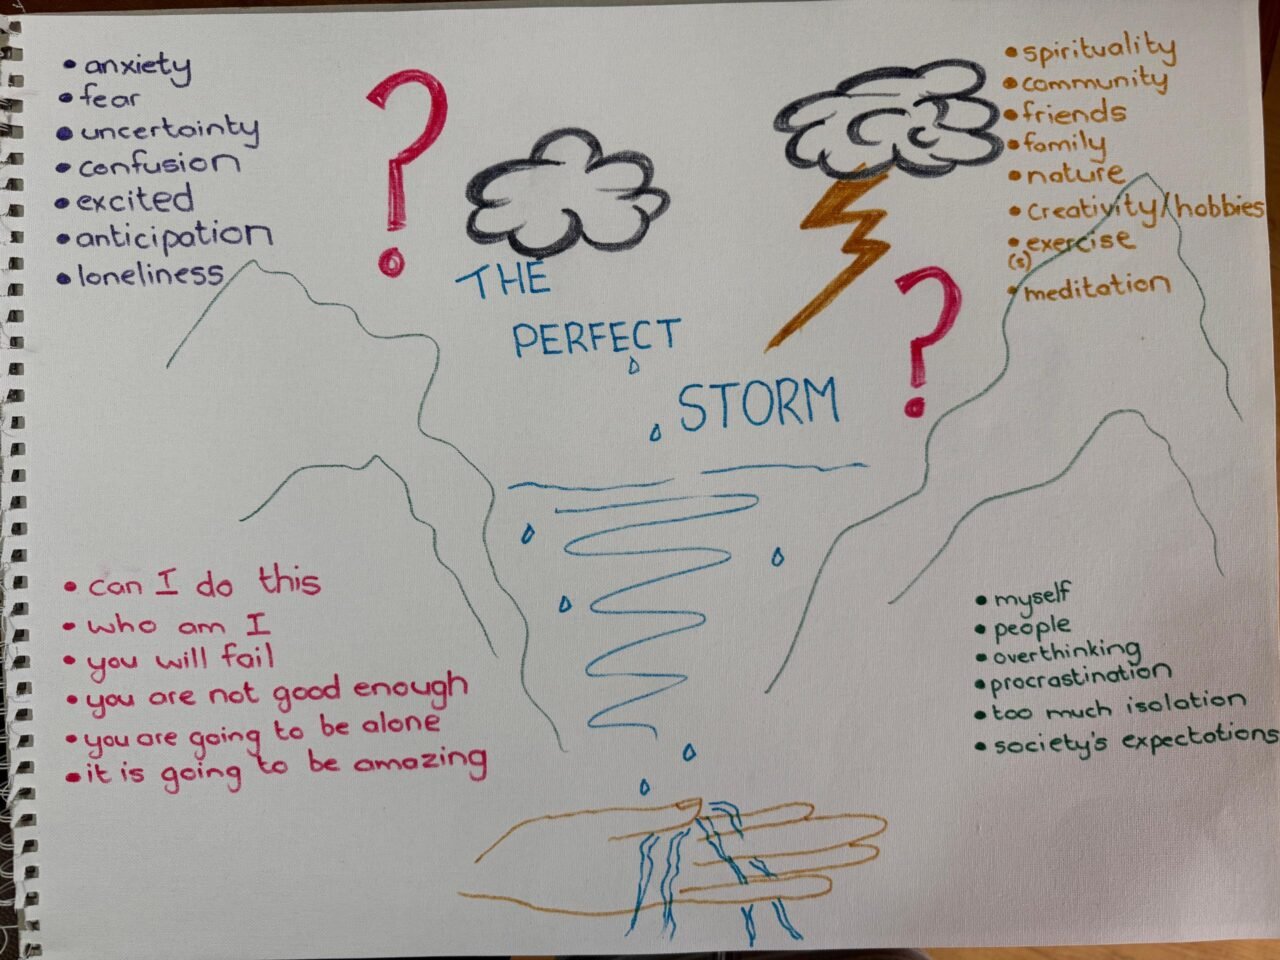 • anxiety
• fear
• uncertainty
• confusion
• excited
• anticipation
• loneliness
THE
PERFECT
STORM
• spirituality
• community
• friends
• family
• nature
• creativity/hobbies
• exercise
(s)
• meditation
• can I do this
• who am I
• you will fail
• you are not good enough
• you are going to be alone
• it is going to be amazing
• myself
• people
• overthinking
• procrastination
• too much isolation
• society's expectations